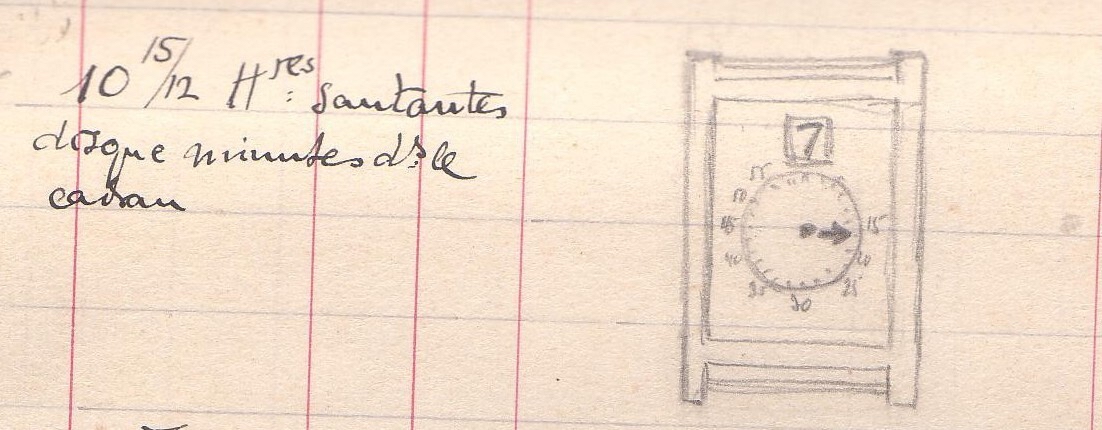 10 15/12 Hres: sautantes
disque minutes ds le
cadran
7
15
20
25
30
40